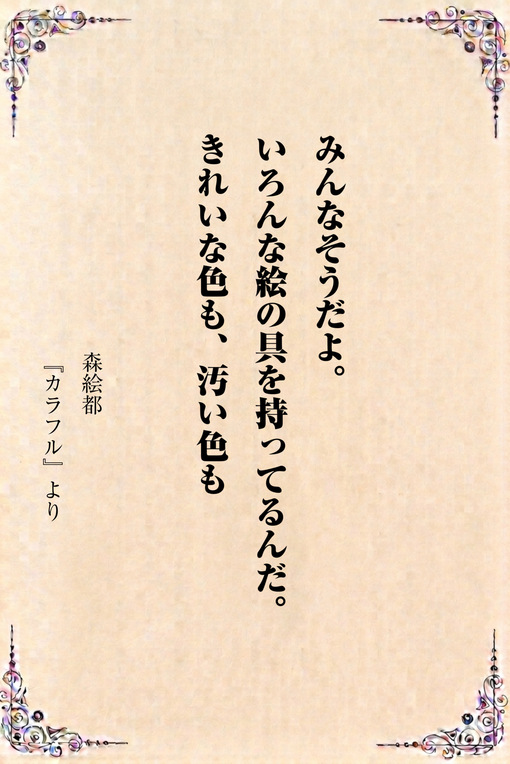 みんなそうだよ。
いろんな絵の具を持ってるんだ。
きれいな色も、汚い色も
森絵都
『カラフル』より